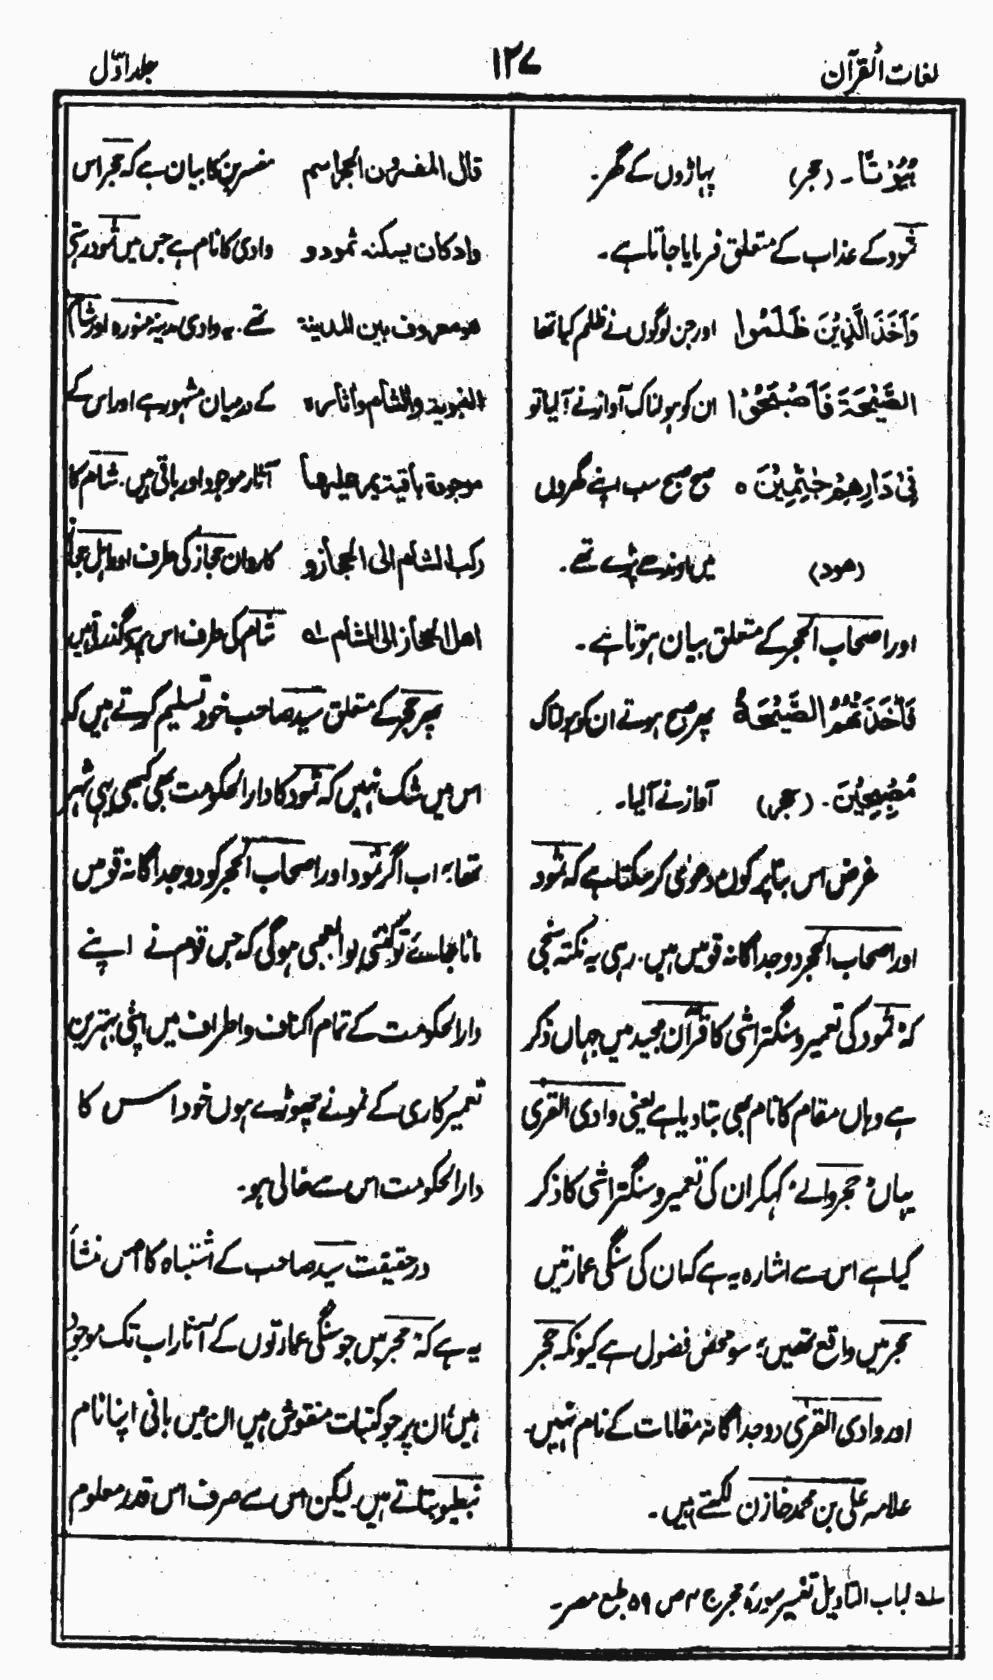 لغات القرآن
۱۲۷
جلد اوّل
بُيُوْتًا۔ (حجر) پہاڑوں کے گھر۔
ثمود کے عذاب کے متعلق فرمایا جاتا ہے۔
وَاَخَذَ الَّذِيْنَ ظَلَمُوا اور جن لوگوں نے ظلم کیا تھا
الصَّيْحَةُ فَاَصْبَحُوْا ان کو ہولناک آواز نے آ لیا تو
فِيْ دَارِهِمْ جٰثِمِيْنَ ہ صبح صبح سب اپنے گھروں
(هود) میں اوندھے پڑے تھے۔
اور اصحاب الحجر کے متعلق بیان ہوتا ہے۔
فَاَخَذَتْهُمُ الصَّيْحَةُ پھر صبح ہوتے ان کو ہولناک
مُصْبِحِيْنَ۔ (حجر) آواز نے آ لیا۔
غرض اس بنا پر کون دعویٰ کر سکتا ہے کہ ثمود
اور اصحاب الحجر دو جداگانہ قومیں ہیں۔ رہی یہ نکتہ سنجی
کہ ثمود کی تعمیر و سنگتراشی کا قرآن مجید میں جہاں ذکر
ہے وہاں مقام کا نام بھی بتا دیا ہے یعنی وادی القری
یہاں "حجر والے" کہکر ان کی تعمیر و سنگتراشی کا ذکر
کیا ہے اس سے اشارہ یہ ہے کہ ان کی سنگی عمارتیں
حجر میں واقع تھیں؛ سو محض فضول ہے کیونکہ حجر
اور وادی القری دو جداگانہ مقامات کے نام نہیں۔
علامہ علی بن محمد خازن لکھتے ہیں۔
قال المفسرون الحجر اسم مفسرین کا بیان ہے کہ حجر اس
واد كان يسكنه ثمود و وادی کا نام ہے جس میں ثمود رہتے
هو معروف بين المدينة تھے۔ یہ وادی مدینہ منورہ اور شام
النبوية والشام واثاره کے درمیان مشہور ہے اور اس کے
موجودة باقية يمر عليها آثار موجود اور باقی ہیں۔ شام کا
ركب الشام الى الحجاز و کاروان حجاز کی طرف اور اہل حجاز
اهل الحجاز الى الشام لہ شام کی طرف اس پر ہو کر گذرتے ہیں
پھر حجر کے متعلق سید صاحب خود تسلیم کرتے ہیں کہ
اس میں شک نہیں کہ ثمود کا دار الحکومت بھی کبھی یہی شہر
تھا، اب اگر ثمود اور اصحاب الحجر کو دو جداگانہ قومیں
مانا جائے تو کتنی بوالعجبی ہوگی کہ جس قوم نے اپنے
دار الحکومت کے تمام اکناف و اطراف میں اپنی بہترین
تعمیر کاری کے نمونے چھوڑے ہوں خود اس کا
دار الحکومت اس سے خالی ہو۔
در حقیقت سید صاحب کے اشتباہ کا اصل منشأ
یہ ہے کہ حجر میں جو سنگی عمارتوں کے آثار اب تک موجود
ہیں، ان پر جو کتبات منقوش ہیں ان میں بانی اپنا نام
نبطیو بتاتے ہیں۔ لیکن اس سے صرف اس قدر معلوم
لہ لباب التاویل تفسیر سورۃ حجر ج ۳ ص ۵۹ طبع مصر۔